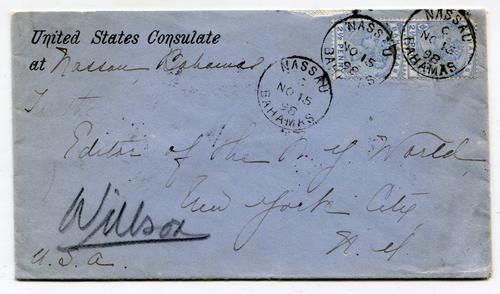 United States Consulate
at Nassau Bahamas
To the
Editor of the N.Y. World
New York City
N.Y.
U.S.A.
Willson
NASSAU
C
NO 15
98
BAHAMAS
NASSAU
NO 15
98
BAHAMAS
NASSAU
C
NO 15
98
BAHAMAS
2½ PENNY